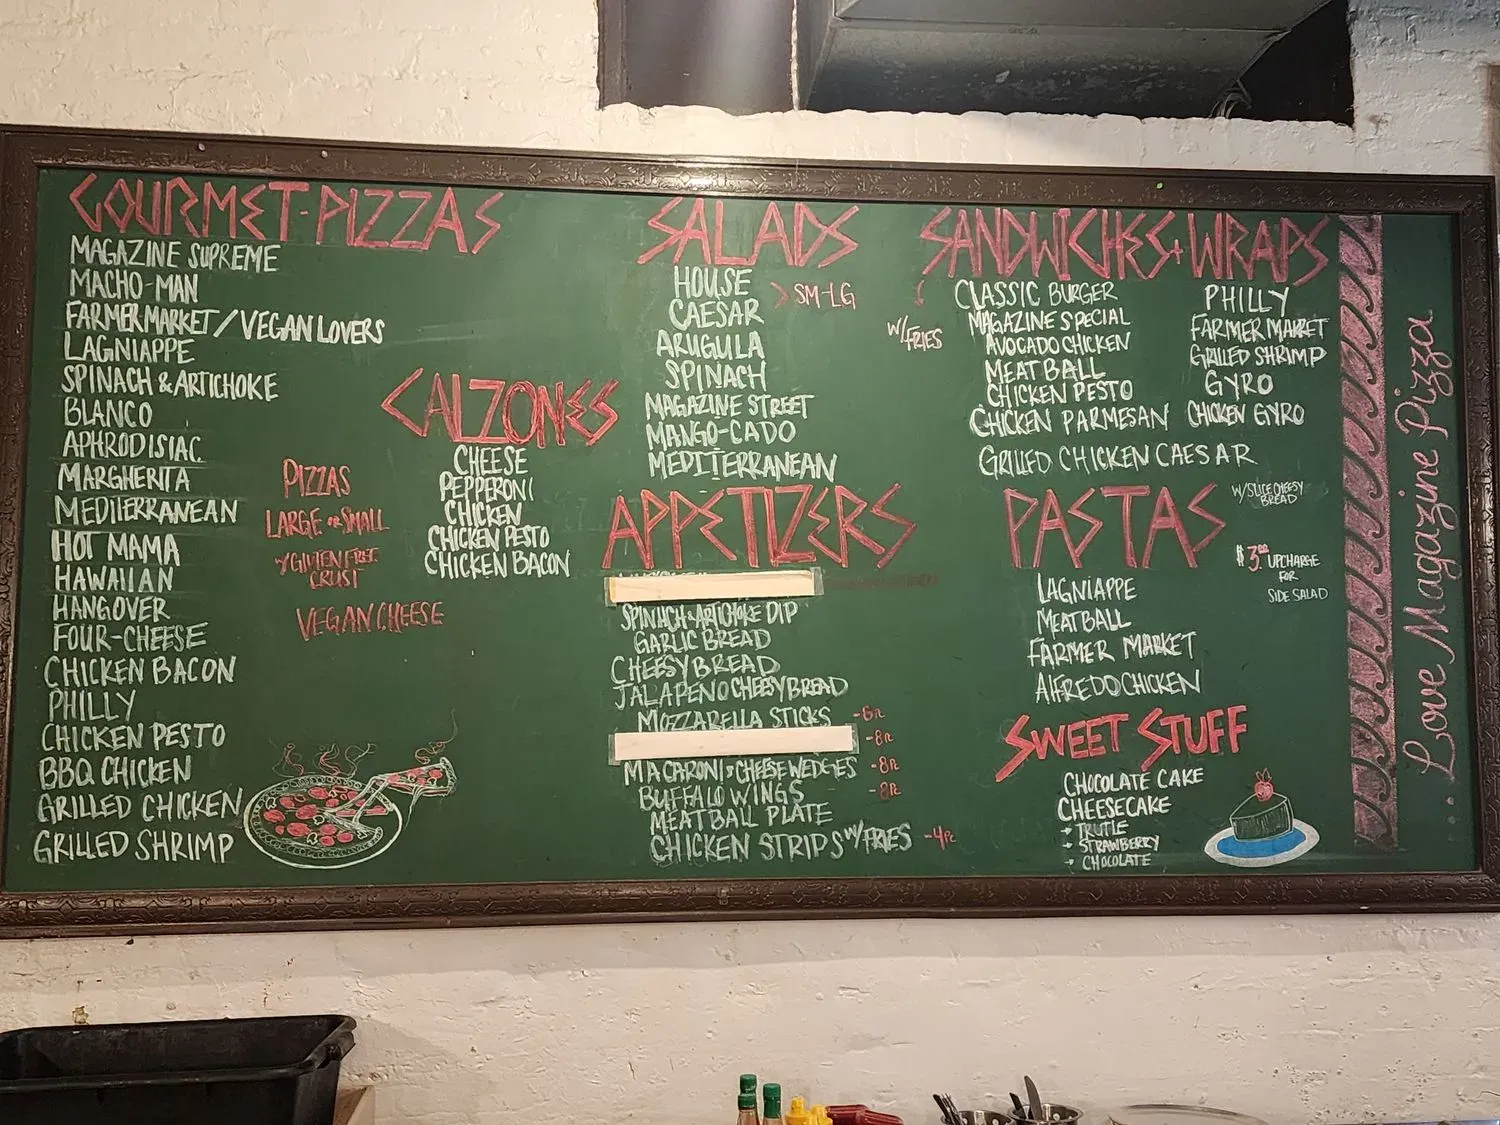 GOURMET-PIZZAS
MAGAZINE SUPREME
MACHO-MAN
FARMERMARKET/VEGAN LOVERS
LAGNIAPPE
SPINACH & ARTICHOKE
BLANCO
APHRODISIAC
MARGHERITA
MEDITERRANEAN
HOT MAMA
HAWAIIAN
HANGOVER
FOUR-CHEESE
CHICKEN BACON
PHILLY
CHICKEN PESTO
BBQ CHICKEN
GRILLED CHICKEN
GRILLED SHRIMP
PIZZAS
LARGE OR SMALL
W/GLUTEN FREE
CRUST
VEGAN CHEESE
CALZONES
CHEESE
PEPPERONI
CHICKEN
CHICKEN PESTO
CHICKEN BACON
SALADS
HOUSE
CAESAR
> SM-LG
ARUGULA
SPINACH
MAGAZINE STREET
MANGO-CADO
MEDITERRANEAN
APPETIZERS
SPINACH & ARTICHOKE DIP
GARLIC BREAD
CHEESY BREAD
JALAPENO CHEESY BREAD
MOZZARELLA STICKS -6PC
-8PC
MACARONI & CHEESE WEDGES -8PC
BUFFALO WINGS -8PC
MEATBALL PLATE
CHICKEN STRIPS W/FRIES -4PC
SANDWICHES + WRAPS
W/FRIES
CLASSIC BURGER
MAGAZINE SPECIAL
AVOCADO CHICKEN
MEATBALL
CHICKEN PESTO
CHICKEN PARMESAN
GRILLED CHICKEN CAESAR
PHILLY
FARMER MARKET
GRILLED SHRIMP
GYRO
CHICKEN GYRO
PASTAS
W/SLICE CHEESY
BREAD
LAGNIAPPE
MEATBALL
FARMER MARKET
ALFREDO CHICKEN
$3.00 UPCHARGE
FOR
SIDE SALAD
SWEET STUFF
CHOCOLATE CAKE
CHEESECAKE
→ TRUTLE
→ STRAWBERRY
→ CHOCOLATE
... Love Magazine Pizza